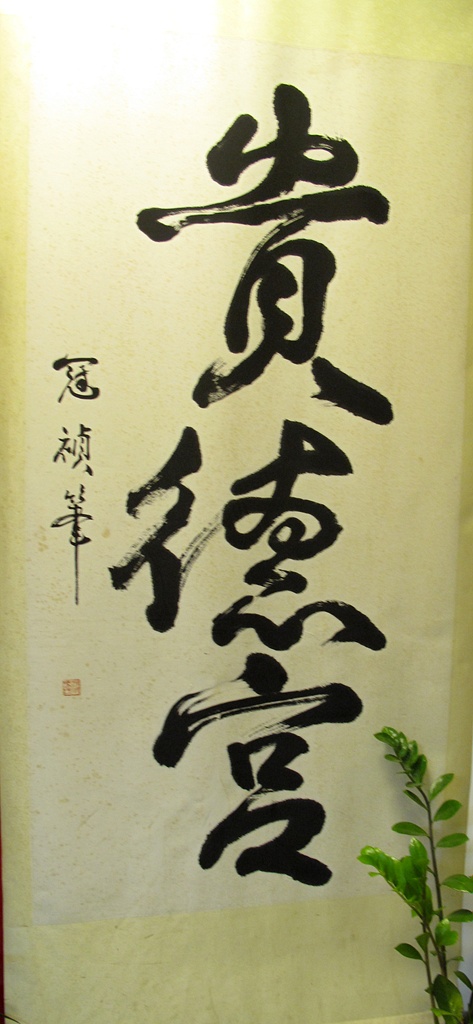 貴德宮
冠禎筆